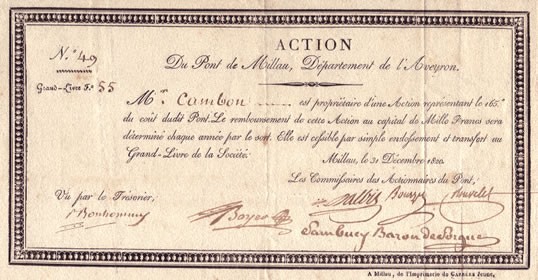 ACTION
N.° 49
Du Pont de Millau, Département de l'Aveyron.
Grand-Livre F.° 55
M.r Cambon est propriétaire d'une Action représentant le 165.e
du coût dudit Pont. Le remboursement de cette Action au capital de Mille Francs sera
déterminé chaque année par le sort. Elle est cessible par simple endossement et transfert au
Grand-Livre de la Société.
Millau, le 31 Décembre 1820.
Les Commissaires des Actionnaires du Pont,
Vu par le Trésorier,
Boyer
Sambucy Baron de Sorgue
A Millau, de l'Imprimerie de